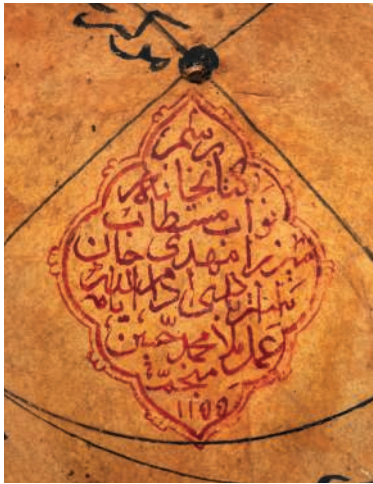 برسم
کتابخانه
نواب مستطاب
میرزا مهدی خان
استرابادی ادام الله ایامه
عمل ملا محمد حسین
منجم
۱۱۵۵